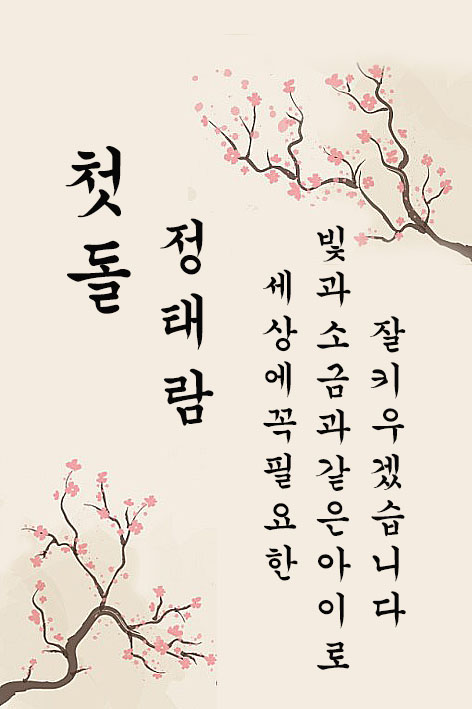 첫돌
정태람
세상에꼭필요한
빛과소금과같은아이로
잘키우겠습니다